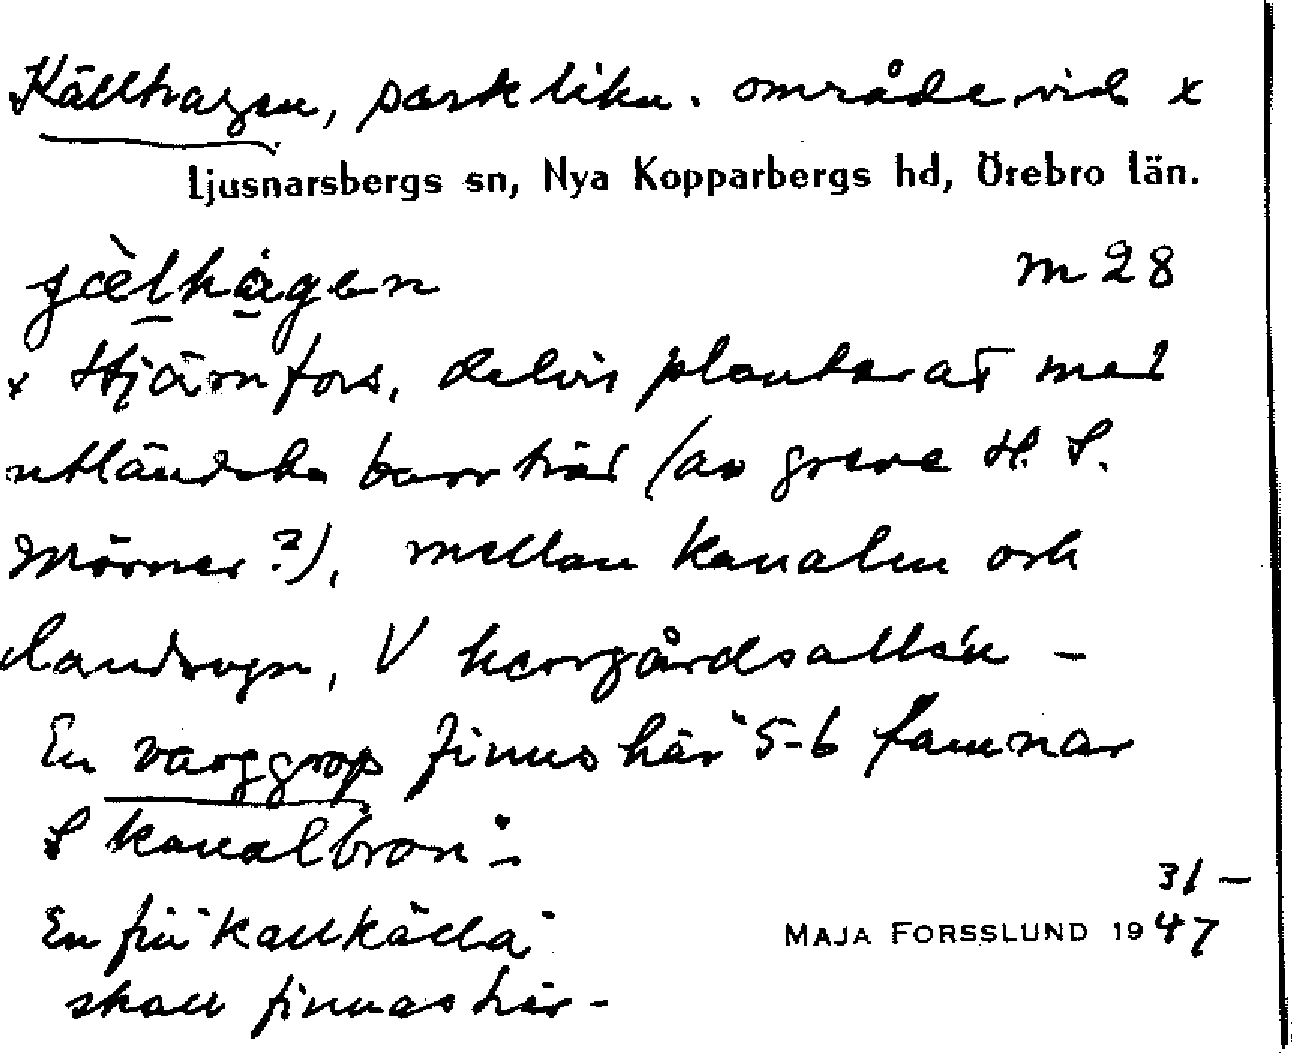 Källhagen, parklikn. område vid x
Ljusnarsbergs sn, Nya Kopparbergs hd, Örebro län.
jèlhàgen m 28
x Stjärnfors, delvis planterat med
utländska barrträd (av greve H. S.
Mörner?), mellan kanalen och
landsvgn, V herrgårdsallén –
En varggrop finns här "5-6 famnar
S kanalbron" –
En fin "kallkälla"
skall finnas här –
31 –
MAJA FORSSLUND 1947